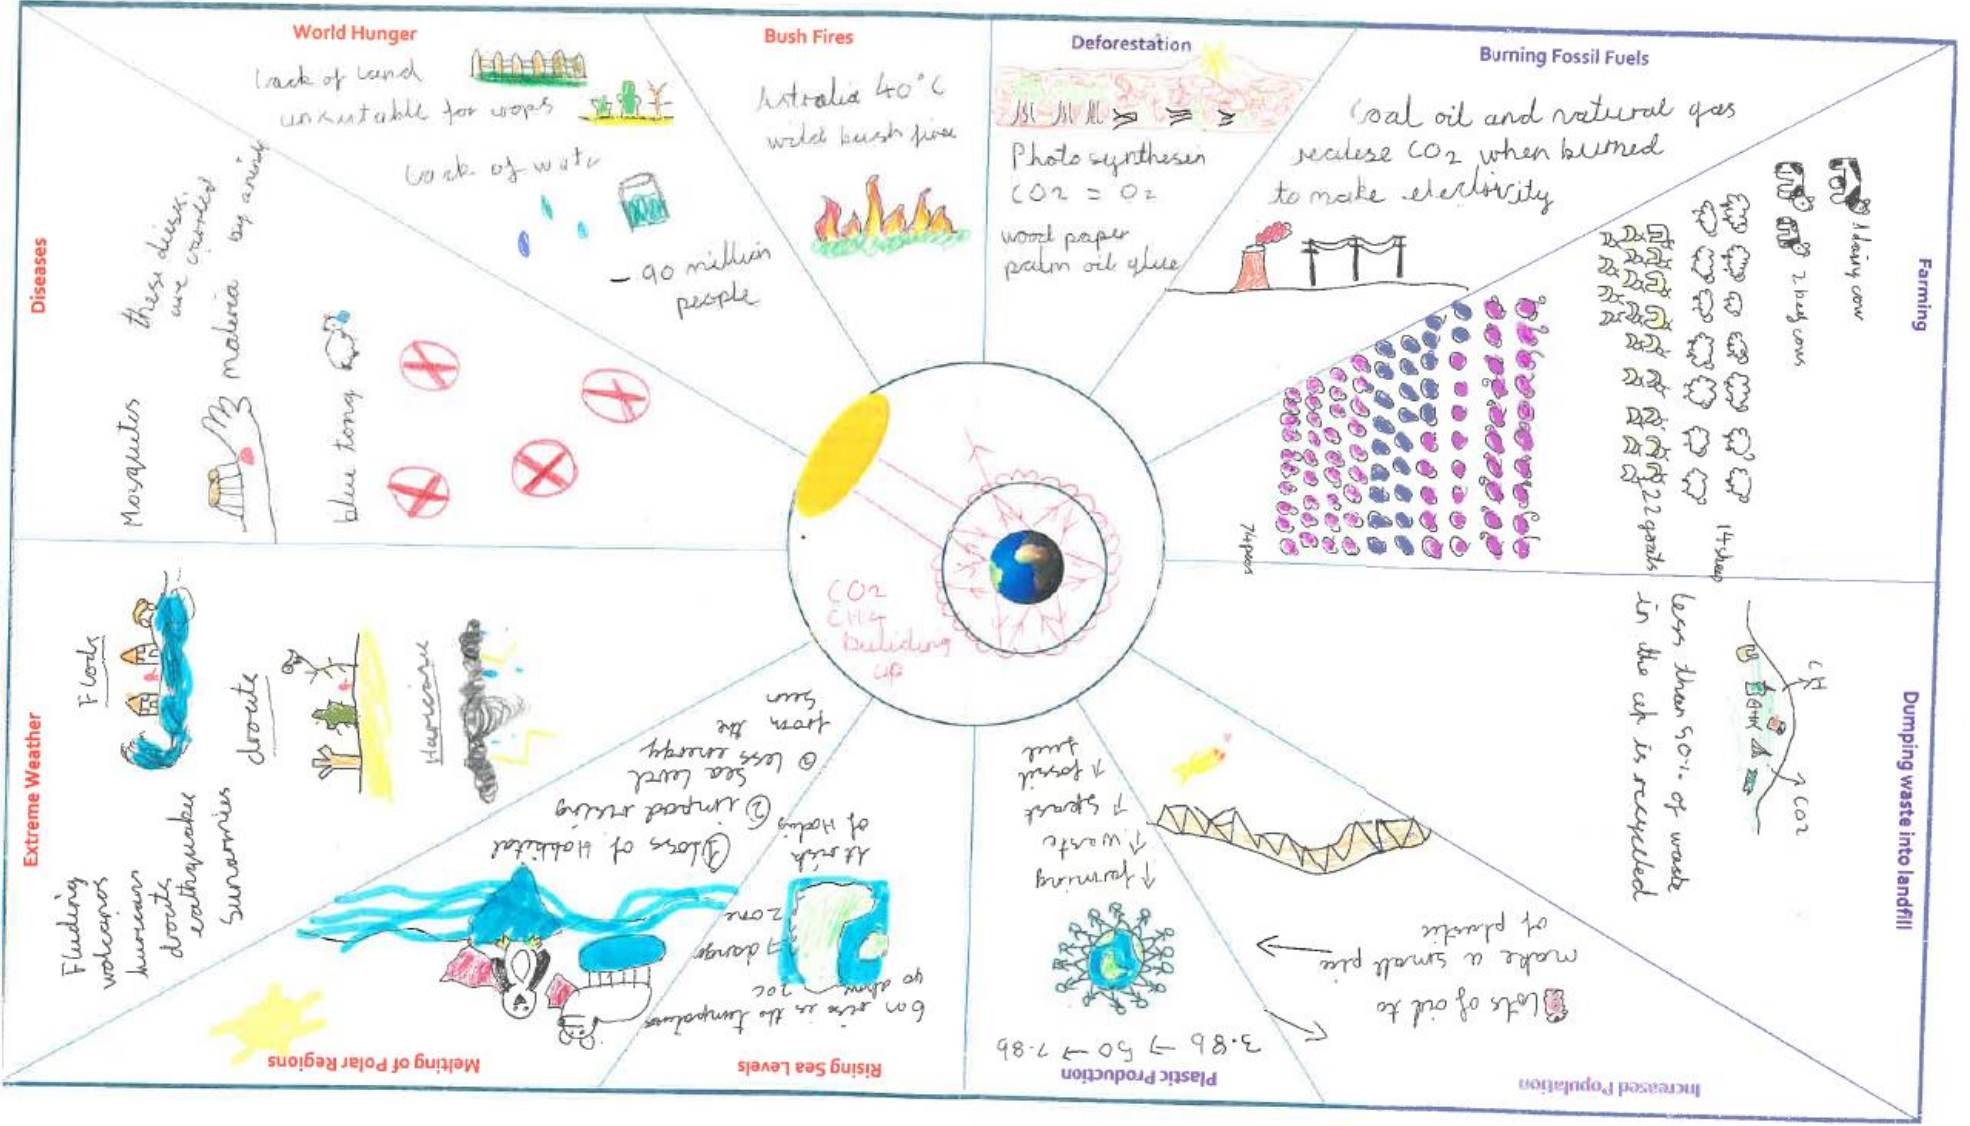 World Hunger
Lack of land
unsutable for crops
Lack of wate
- 90 million
people
Bush Fires
Astralia 40°C
wild bush fires
Deforestation
Photosynthesin
CO2 = O2
wood paper
palm oil glue
Burning Fossil Fuels
Coal oil and natural gas
realese CO2 when burned
to make electricity
Farming
1 dairy cow
2 beef cows
14 sheep
22 goats
74 peos
Dumping waste into landfill
CH
CO2
less than 90% of waste
in the uk is recycled
Increased Population
Lots of oil to
make a small pice
of plastic
Plastic Production
3.8b → 50 → 7.8b
↑ farming
↑ waste
↑ space
↑ fossil
fuel
Rising Sea Levels
6m rise is the tempature
go above 2oc
→ danger
zone
At risk
of
Melting of Polar Regions
① Loss of Habbitat
② impact rising
sea level
③ less energy
from the
sun
Extreme Weather
Floods
droute
Hurricane
Fluding
volcanos
hurricans
droute
eathquakes
Sunamries
Diseases
these diseses
are carried
by anim
Mosquitos
maleria
blue tong
CO2
CH4
Buliding
up